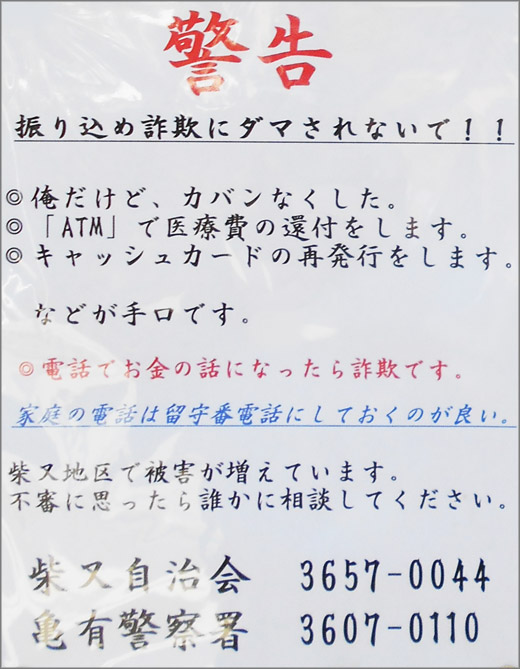 警告
振り込め詐欺にダマされないで！！
◎俺だけど、カバンなくした。
◎「ATM」で医療費の還付をします。
◎キャッシュカードの再発行をします。
などが手口です。
◎電話でお金の話になったら詐欺です。
家庭の電話は留守番電話にしておくのが良い。
柴又地区で被害が増えています。
不審に思ったら誰かに相談してください。
柴又自治会 3657-0044
亀有警察署 3607-0110